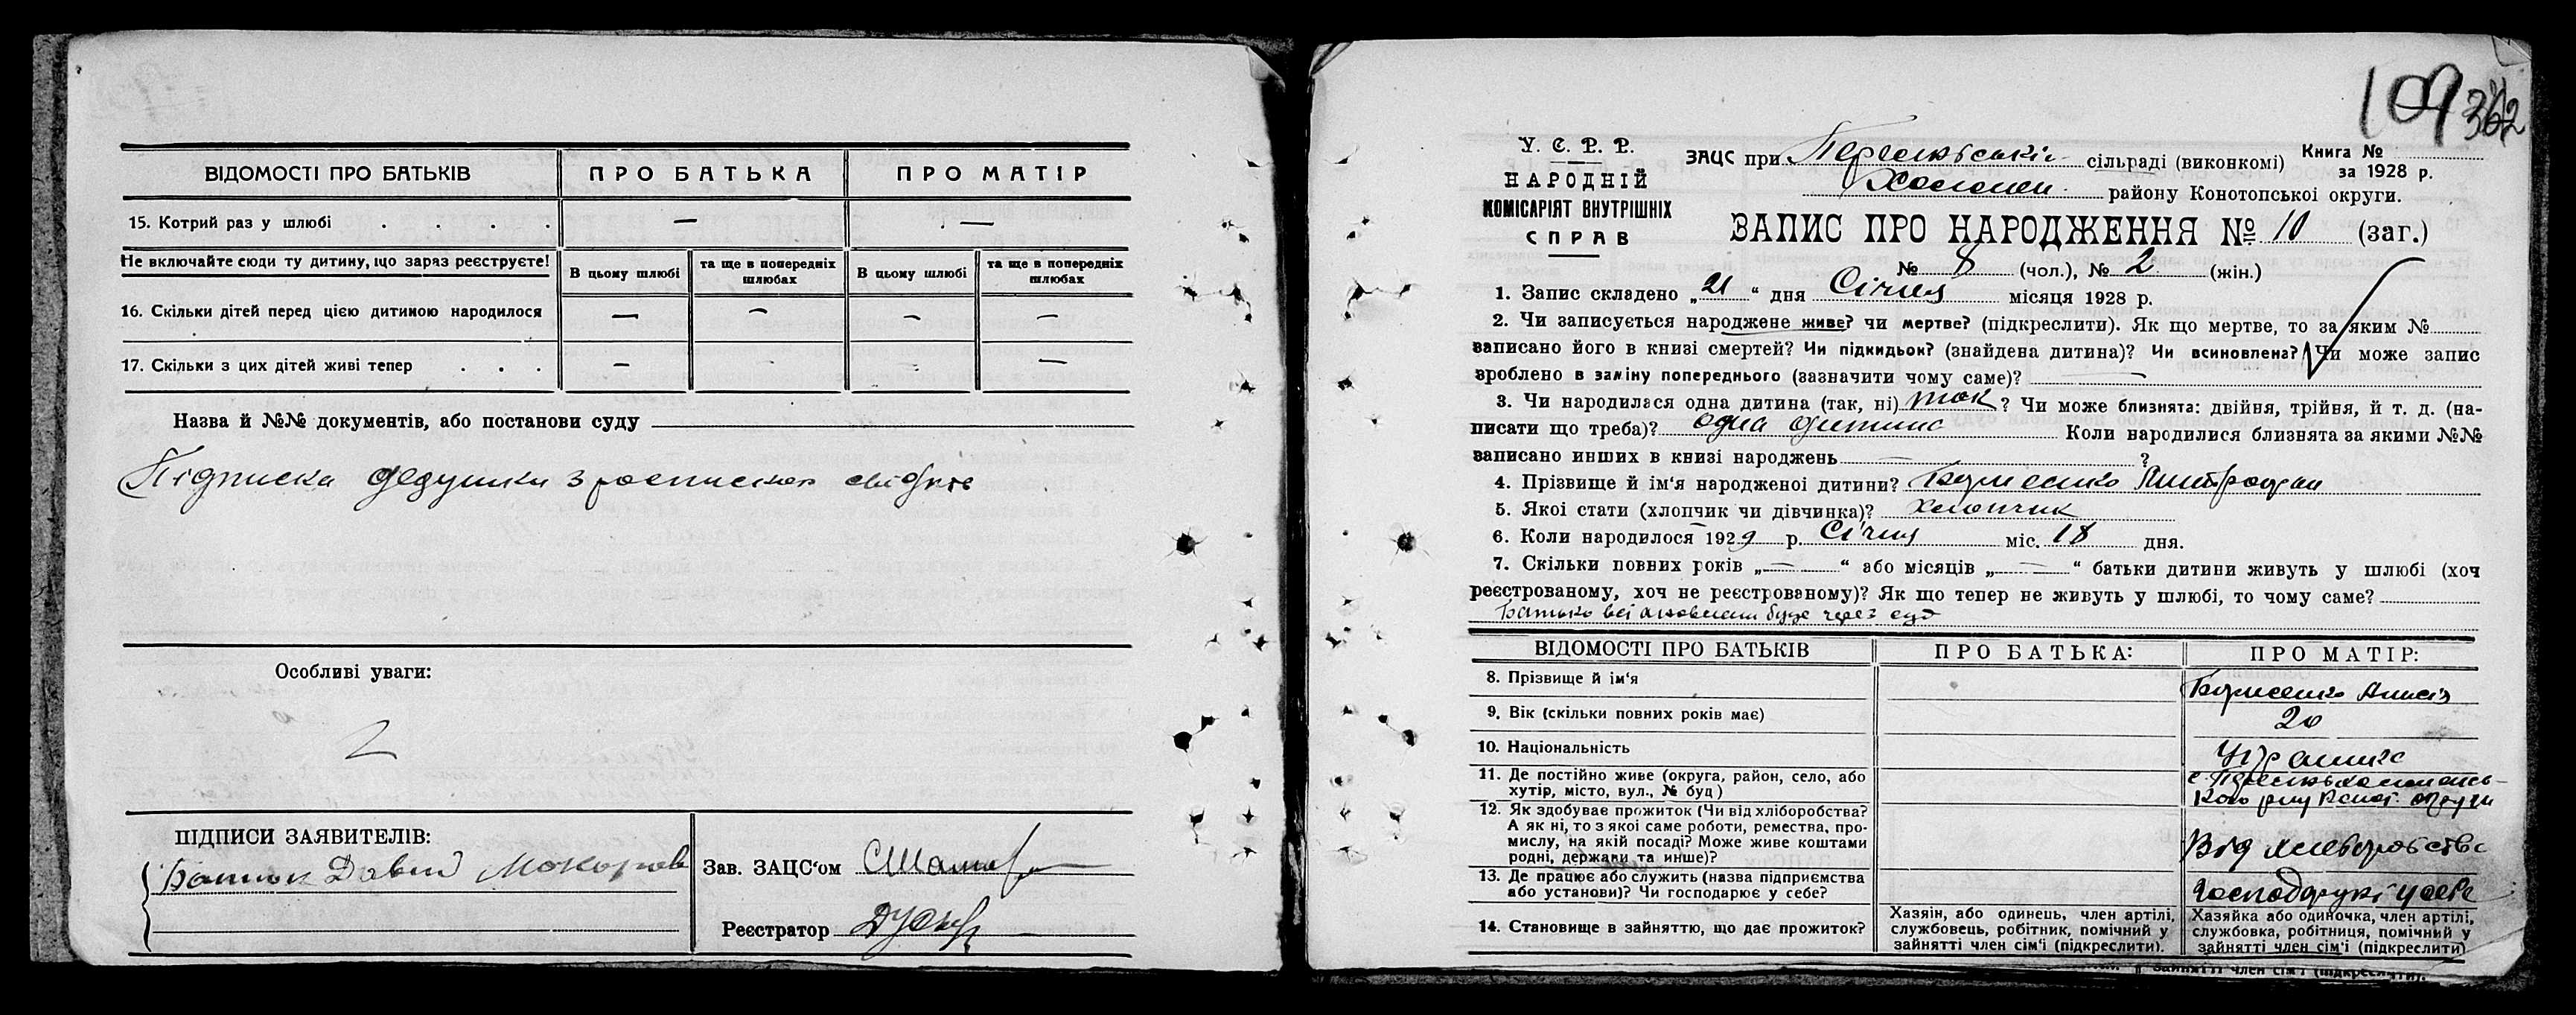 ВІДОМОСТІ ПРО БАТЬКІВ
ПРО БАТЬКА
ПРО МАТІР
15. Котрий раз у шлюбі . . . .
—
—
Не включайте сюди ту дитину, що зараз реєструєте!
В цьому шлюбі
та ще в попередніх шлюбах
В цьому шлюбі
та ще в попередніх шлюбах
16. Скільки дітей перед цією дитиною народилося
— — — —
17. Скільки з цих дітей живі тепер . . .
— — — —
Назва й №№ документів, або постанови суду
Підписка дедушки
Особливі уваги:
ПІДПИСИ ЗАЯВИТЕЛІВ:
Батьк Давид
Зав. ЗАЦС‘ом
Реєстратор
109 362
У. С. Р. Р.
НАРОДНІЙ
КОМІСАРІЯТ ВНУТРІШНІХ
СПРАВ
ЗАЦС при сільраді (виконкомі)
Книга №
за 1928 р.
району Конотопської округи.
ЗАПИС ПРО НАРОДЖЕННЯ № 10 (заг.)
№ 8 (чол.), № 2 (жін.)
1. Запис складено „21“ дня Січня місяця 1928 р.
2. Чи записується народжене живе? чи мертве? (підкреслити). Як що мертве, то за яким №
записано його в книзі смертей? Чи підкидьок? (знайдена дитина)? Чи всиновлена? Чи може запис
зроблено в заміну попереднього (зазначити чому саме)? —
3. Чи народилася одна дитина (так, ні) так? Чи може близнята: двійня, трійня, й т. д. (на-
писати що треба)? одна дитина Коли народилися близнята за якими №№
записано инших в книзі народжень — ?
4. Прізвище й ім‘я народженої дитини? Митрофан
5. Якої стати (хлопчик чи дівчинка)? Хлопчик
6. Коли народилося 1929 р. Січня міс. 18 дня.
7. Скільки повних років „—“ або місяців „—“ батьки дитини живуть у шлюбі (хоч
реєстрованому, хоч не реєстрованому)? Як що тепер не живуть у шлюбі, то чому саме?
Батько буде через суд
ВІДОМОСТІ ПРО БАТЬКІВ
ПРО БАТЬКА:
ПРО МАТІР:
8. Прізвище й ім‘я
9. Вік (скільки повних років має)
20
10. Національність
Українка
11. Де постійно живе (округа, район, село, або
хутір, місто, вул., № буд)
округи
12. Як здобуває прожиток (Чи від хліборобства?
А як ні, то з якої саме роботи, ремества, про-
мислу, на якій посаді? Може живе коштами
родні, держави та инше)?
Від хліборобства
13. Де працює або служить (назва підприємства
або установи)? Чи господарює у себе?
Господарює у себе
14. Становище в зайняттю, що дає прожиток?
Хазяін, або одинець, член артілі,
службовець, робітник, помічний у
зайнятті член сім‘і (підкреслити).
Хазяйка або одиночка, член артілі,
службовка, робітниця, помічний у
зайнятті член сім‘і (підкреслити)